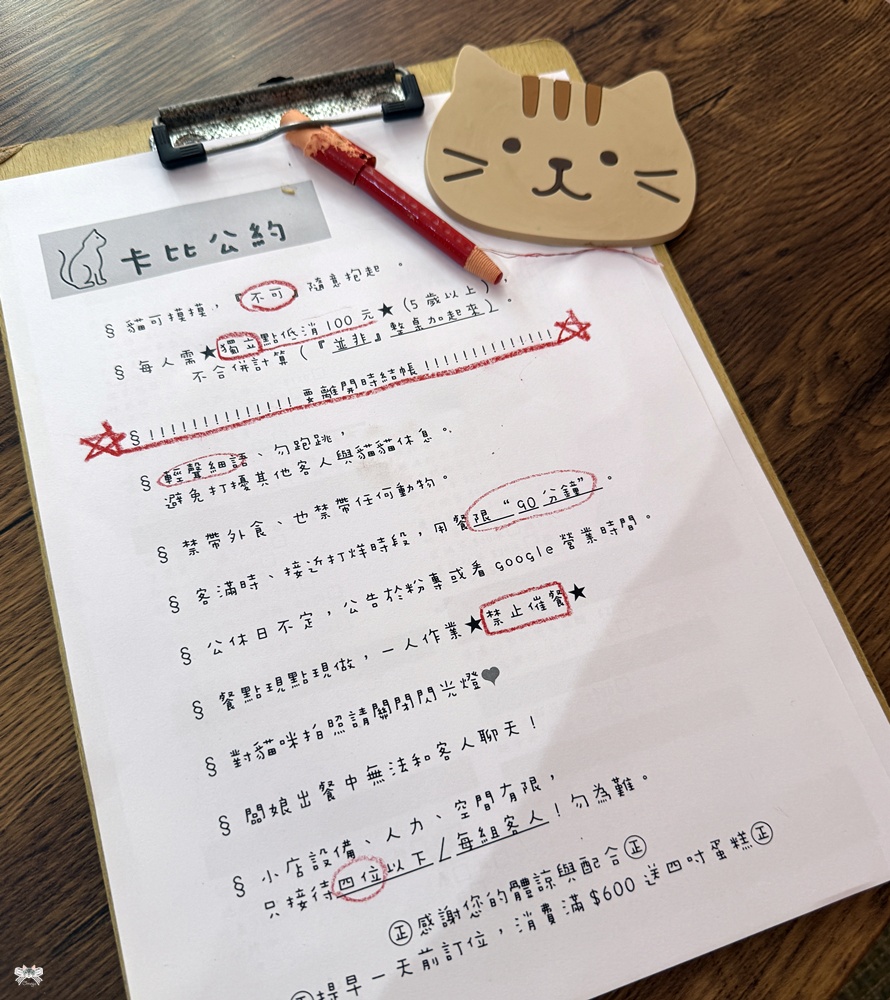 卡比公約
§ 貓可摸摸，『不可』隨意抱起。
§ 每人需★獨立點低消100元★(5歲以上)，
不合併計算(『並非』整桌加起來)。
§ !!!!!!!!!!!!!! 要離開時結帳 !!!!!!!!!!!!!!
§ 輕聲細語、勿跑跳，
避免打擾其他客人與貓貓休息。
§ 禁帶外食、也禁帶任何動物。
§ 客滿時、接近打烊時段，用餐限“90分鐘”。
§ 公休日不定，公告於粉專或看google營業時間。
§ 餐點現點現做，一人作業★禁止催餐★
§ 對貓咪拍照請關閉閃光燈♥
§ 闆娘出餐中無法和客人聊天！
§ 小店設備、人力、空間有限，
只接待四位以下/每組客人！勿為難。
㊣感謝您的體諒與配合㊣
㊣提早一天前訂位，消費滿$600送四吋蛋糕㊣